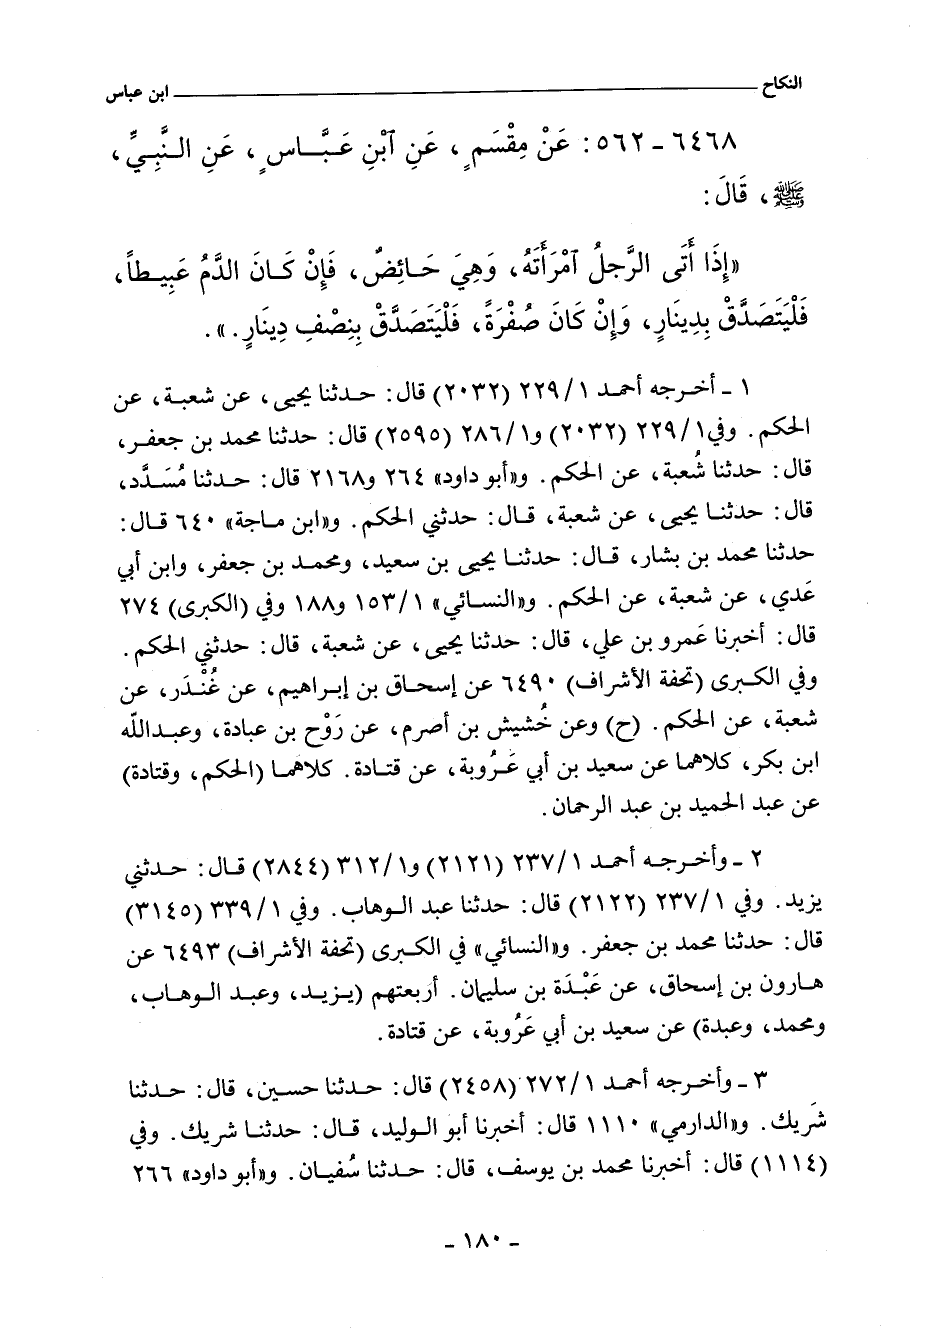 النكاح ــــــــــــــــــــــــــــــــــــــــ ابن عباس
٦٤٦٨ - ٥٦٢: عَنْ مِقْسَمٍ، عَنِ ٱبْنِ عَبَّـاسٍ، عَنِ النَّبِيِّ،
ﷺ، قَالَ:
«إِذَا أَتَى الرَّجلُ آمْرَأَتَهُ، وَهِيَ حَـائِضٌ، فَإِنْ كَـانَ الدَّمُ عَبِيـطاً،
فَلْيَتَصَدَّقْ بِدِينَارٍ، وَإِنْ كَانَ صُفْرَةً، فَلْيَتَصَدَّقْ بِنِصْفِ دِينَارٍ.».
١ - أخـرجه أحمـد ٢٢٩/١ (٢٠٣٢) قال: حـدثنا يحيى، عن شعبـة، عن
الحكم. وفي ٢٢٩/١ (٢٠٣٢) و٢٨٦/١ (٢٥٩٥) قال: حدثنا محمد بن جعفر،
قال: حدثنا شُعبة، عن الحكم. و«أبو داود» ٢٦٤ و٢١٦٨ قال: حـدثنا مُسَـدَّد،
قال: حدثنـا يحيى، عن شعبة، قـال: حدثني الحكم. و«ابن مـاجة» ٦٤٠ قـال:
حدثنا محمد بن بشار، قـال: حدثنـا يحيى بن سعيد، ومحمـد بن جعفر، وابن أبي
عَدي، عن شعبة، عن الحكم. و«النسائي» ١٥٣/١ و١٨٨ وفي (الكبرى) ٢٧٤
قال: أخبرنا عَمرو بن علي، قال: حدثنا يحيى، عن شعبة، قال: حدثني الحكم.
وفي الكـبرى (تحفة الأشراف) ٦٤٩٠ عن إسحـاق بن إبـراهيم، عن غُنْـدَر، عن
شعبة، عن الحكم. (ح) وعن خُشيش بن أصرم، عن رَوْح بن عبادة، وعبدالله
ابن بكر، كلاهما عن سعيد بن أبي عَـرُوبة، عن قتـادة. كلاهمـا (الحكم، وقتادة)
عن عبد الحميد بن عبد الرحمان.
٢ - وأخـرجـه أحمـد ٢٣٧/١ (٢١٢١) و٣١٢/١ (٢٨٤٤) قـال: حـدثني
يزيد. وفي ٢٣٧/١ (٢١٢٢) قال: حدثنا عبد الـوهاب. وفي ٣٣٩/١ (٣١٤٥)
قال: حدثنا محمد بن جعفر. و«النسائي» في الكبرى (تحفة الأشراف) ٦٤٩٣ عن
هـارون بن إسحاق، عن عَبْـدَة بن سليمان. أربعتهم (يـزيـد، وعبـد الـوهاب،
ومحمد، وعبدة) عن سعيد بن أبي عَرُوبة، عن قتادة.
٣ - وأخـرجه أحمـد ٢٧٢/١ (٢٤٥٨) قال: حـدثنا حسـين، قال: حـدثنا
شَريك. و«الدارمي» ١١١٠ قال: أخبرنا أبو الـوليد، قـال: حدثنـا شريك. وفي
(١١١٤) قال: أخبرنا محمد بن يوسف، قال: حـدثنا سُفيان. و«أبو داود» ٢٦٦
- ١٨٠ -